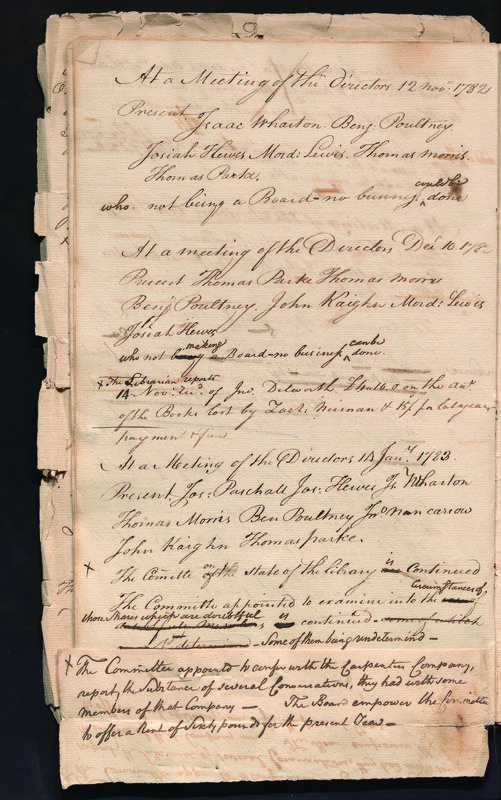 At a Meeting of the Directors 12 novr. 1782
Present Isaac Wharton Benj: Poultney
Josiah Hewes Mord: Lewis. Thomas Morris
Thomas Parke,
could be
who not being a Board - no business done
At a meeting of the Directors Decr 10 178
Present Thomas Parke Thomas Morris
Benj Poultney John Kaighn Mord: Lewis
Josiah Hewes
making can be
who not a Board - no business done.
x The Librarian reports
14 Nov. of Jno. Dilworth on the acct.
of the Books lost by Zach: & for last years
payment
At a Meeting of the Directors 14 Jany. 1783.
Present. Jos: Paschall Jos: Hewes Is. Wharton
Thomas Morris Ben Poultney Jno Nancarrow
John Kaighn Thomas parke.
x
The Comittee on the State of the library is Continued
Circumstances of
The Committe appointed to examine into the
those Shares which are doubtful
is continued -
Some of them being undetermind -
x The Committee appointed to confer with the Carpenters Company,
report, the Substance of several Conversations, they had with some
members of that Company - The Board empower the Committee
to offer a Rent of Sixty pounds for the present Year -